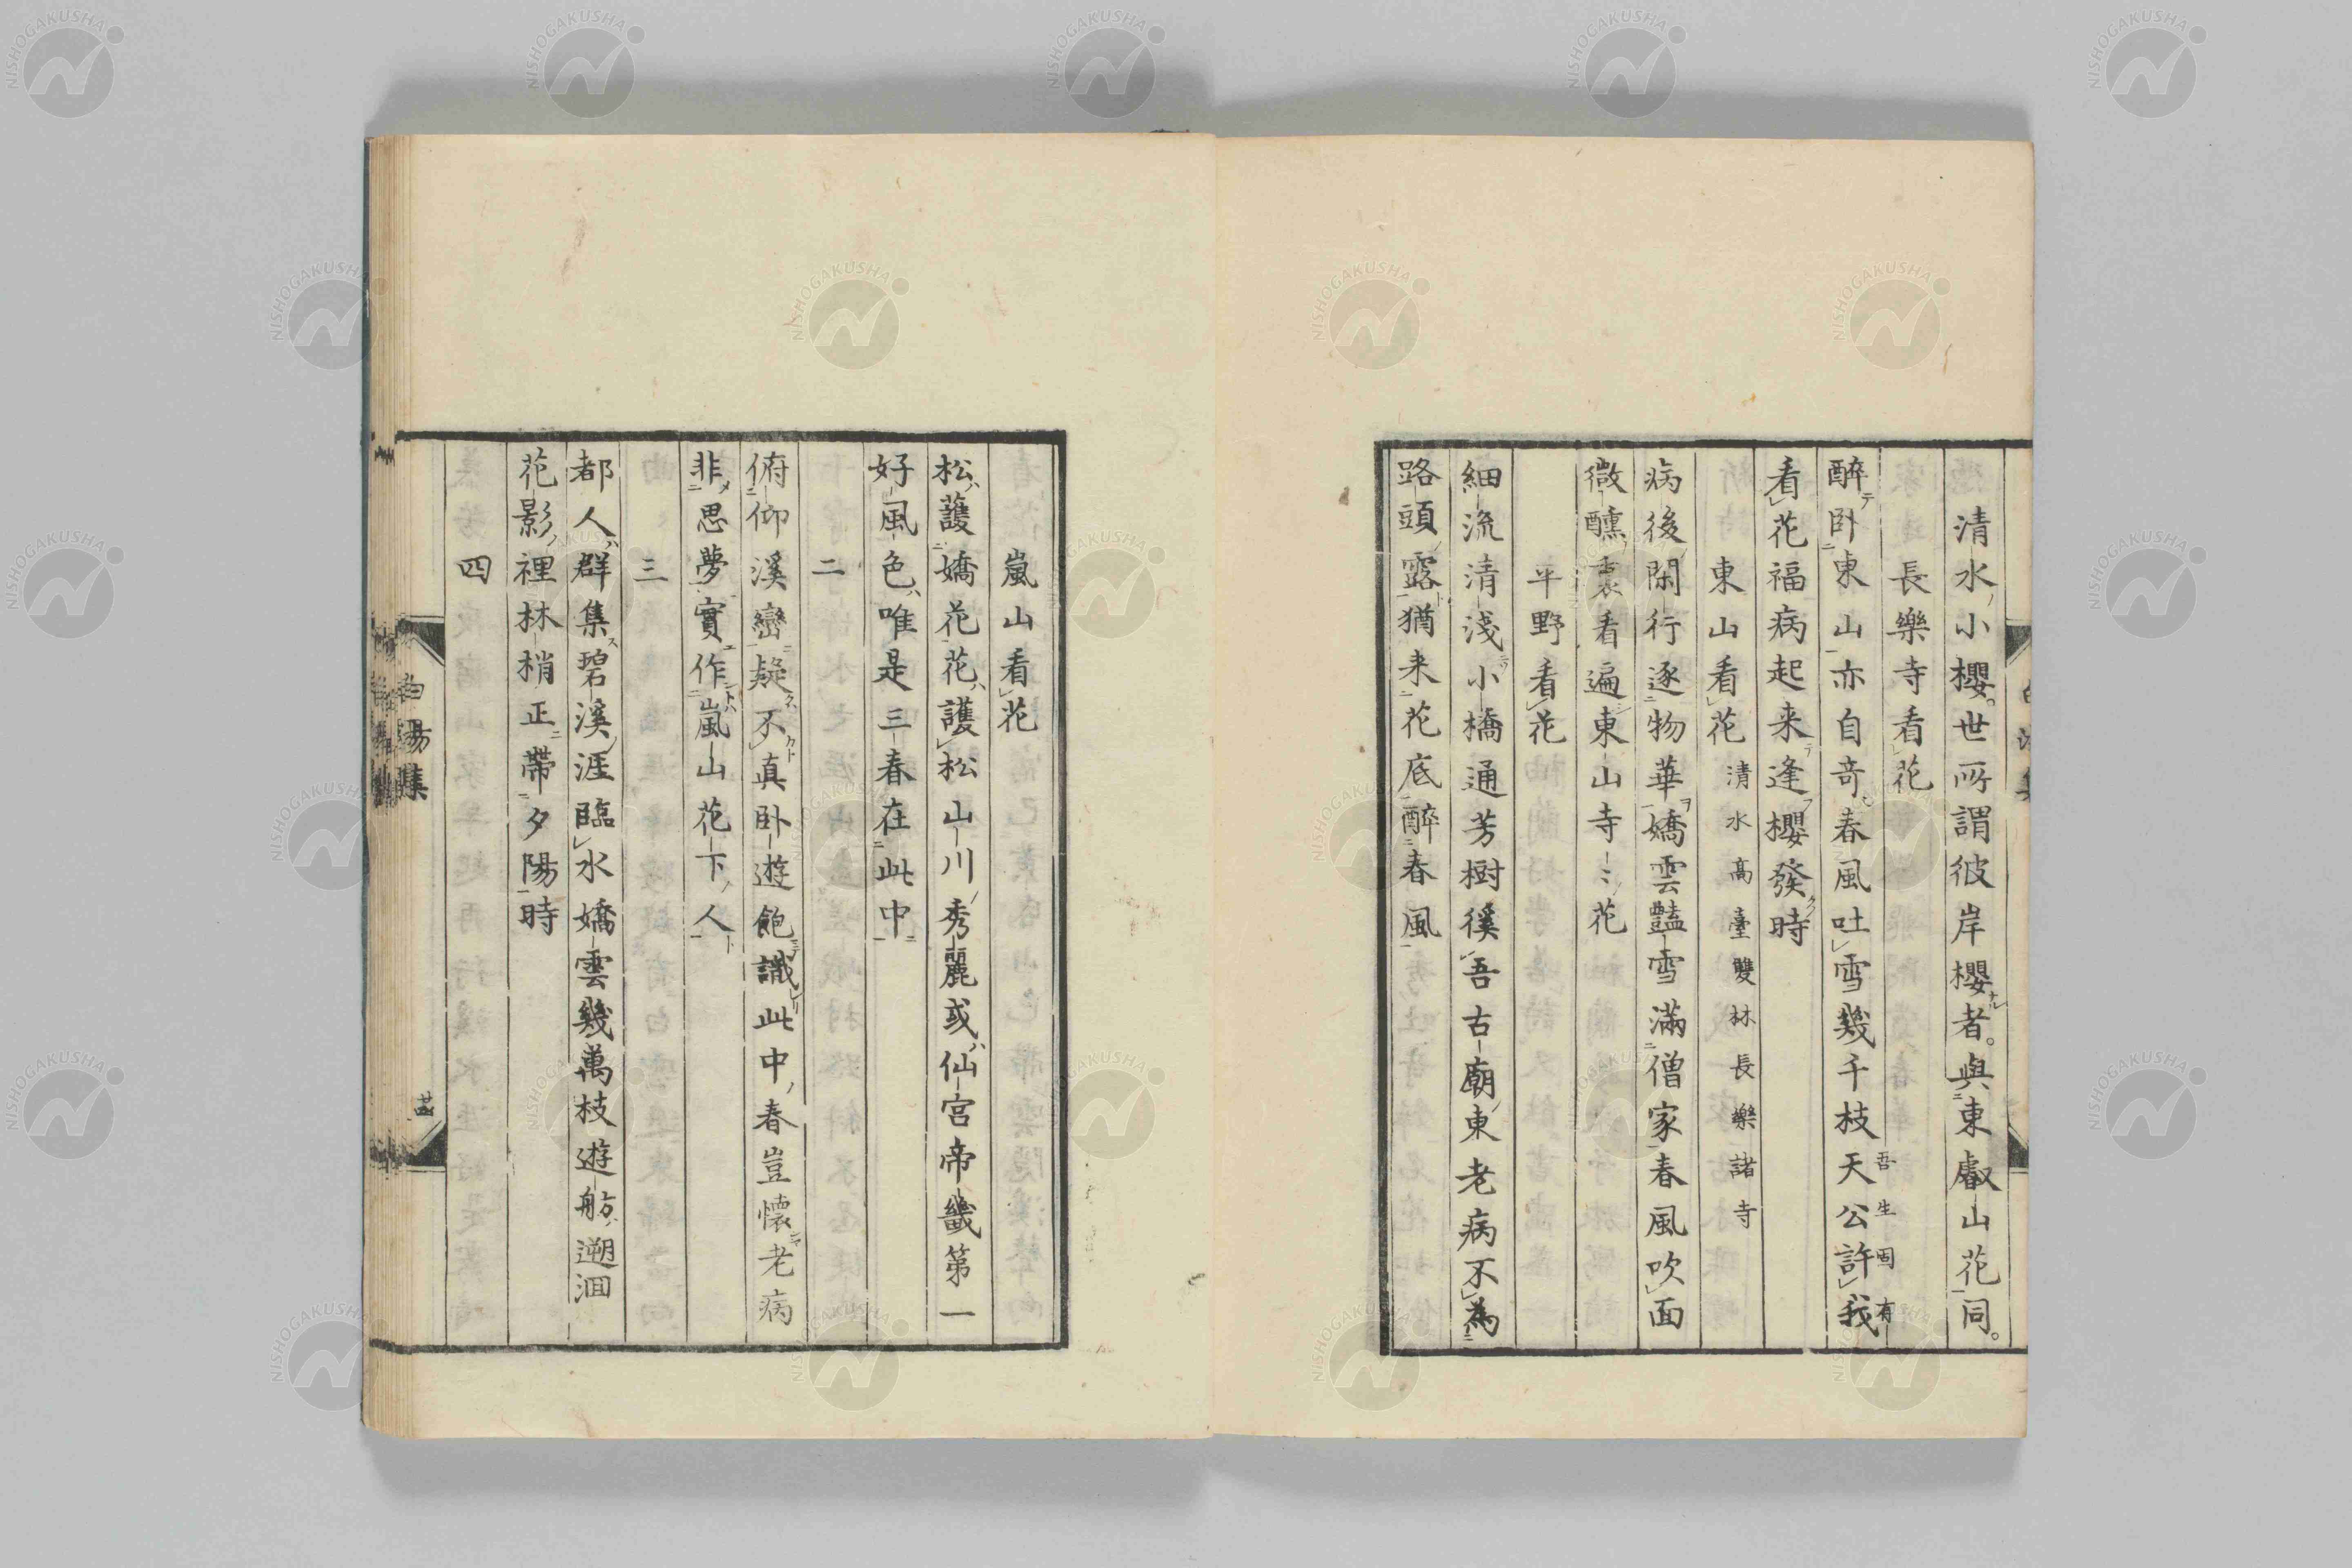 清水小櫻。世所謂彼岸櫻者。與東叡山花同。
長樂寺看花
醉卧東山亦自奇春風吐雪幾千枝天公許我吾生固有
看花福病起来逢櫻發時
東山看花清水高臺雙林長樂諸寺
病後閑行逐物華嬌雲豔雪滿僧家春風吹面
微醺裏看遍東山寺〻花
平野看花
細流清淺小橋通芳樹徯吾古廟東老病不為
路頭露猶来花底醉春風
嵐山看花
松護嬌花花護松山川秀麗或仙宮帝畿第一
好風色唯是三春在此中
二
俯仰溪巒疑不真卧遊飽識此中春豈懷老病
非思夢實作嵐山花下人
三
都人群集碧溪涯臨水嬌雲幾萬枝遊舫遡洄
花影裡林梢正帶夕陽時
四
白湯集
廿四
NISHOGAKUSHA